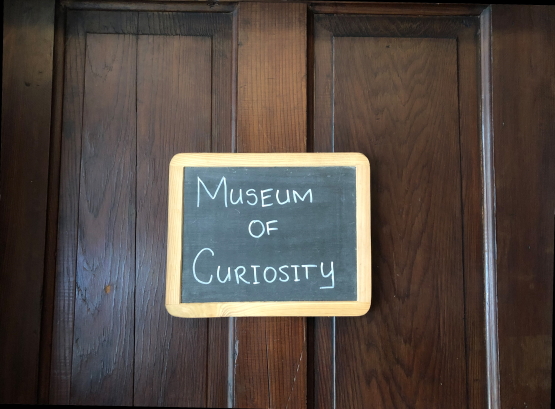 Museum
of
Curiosity